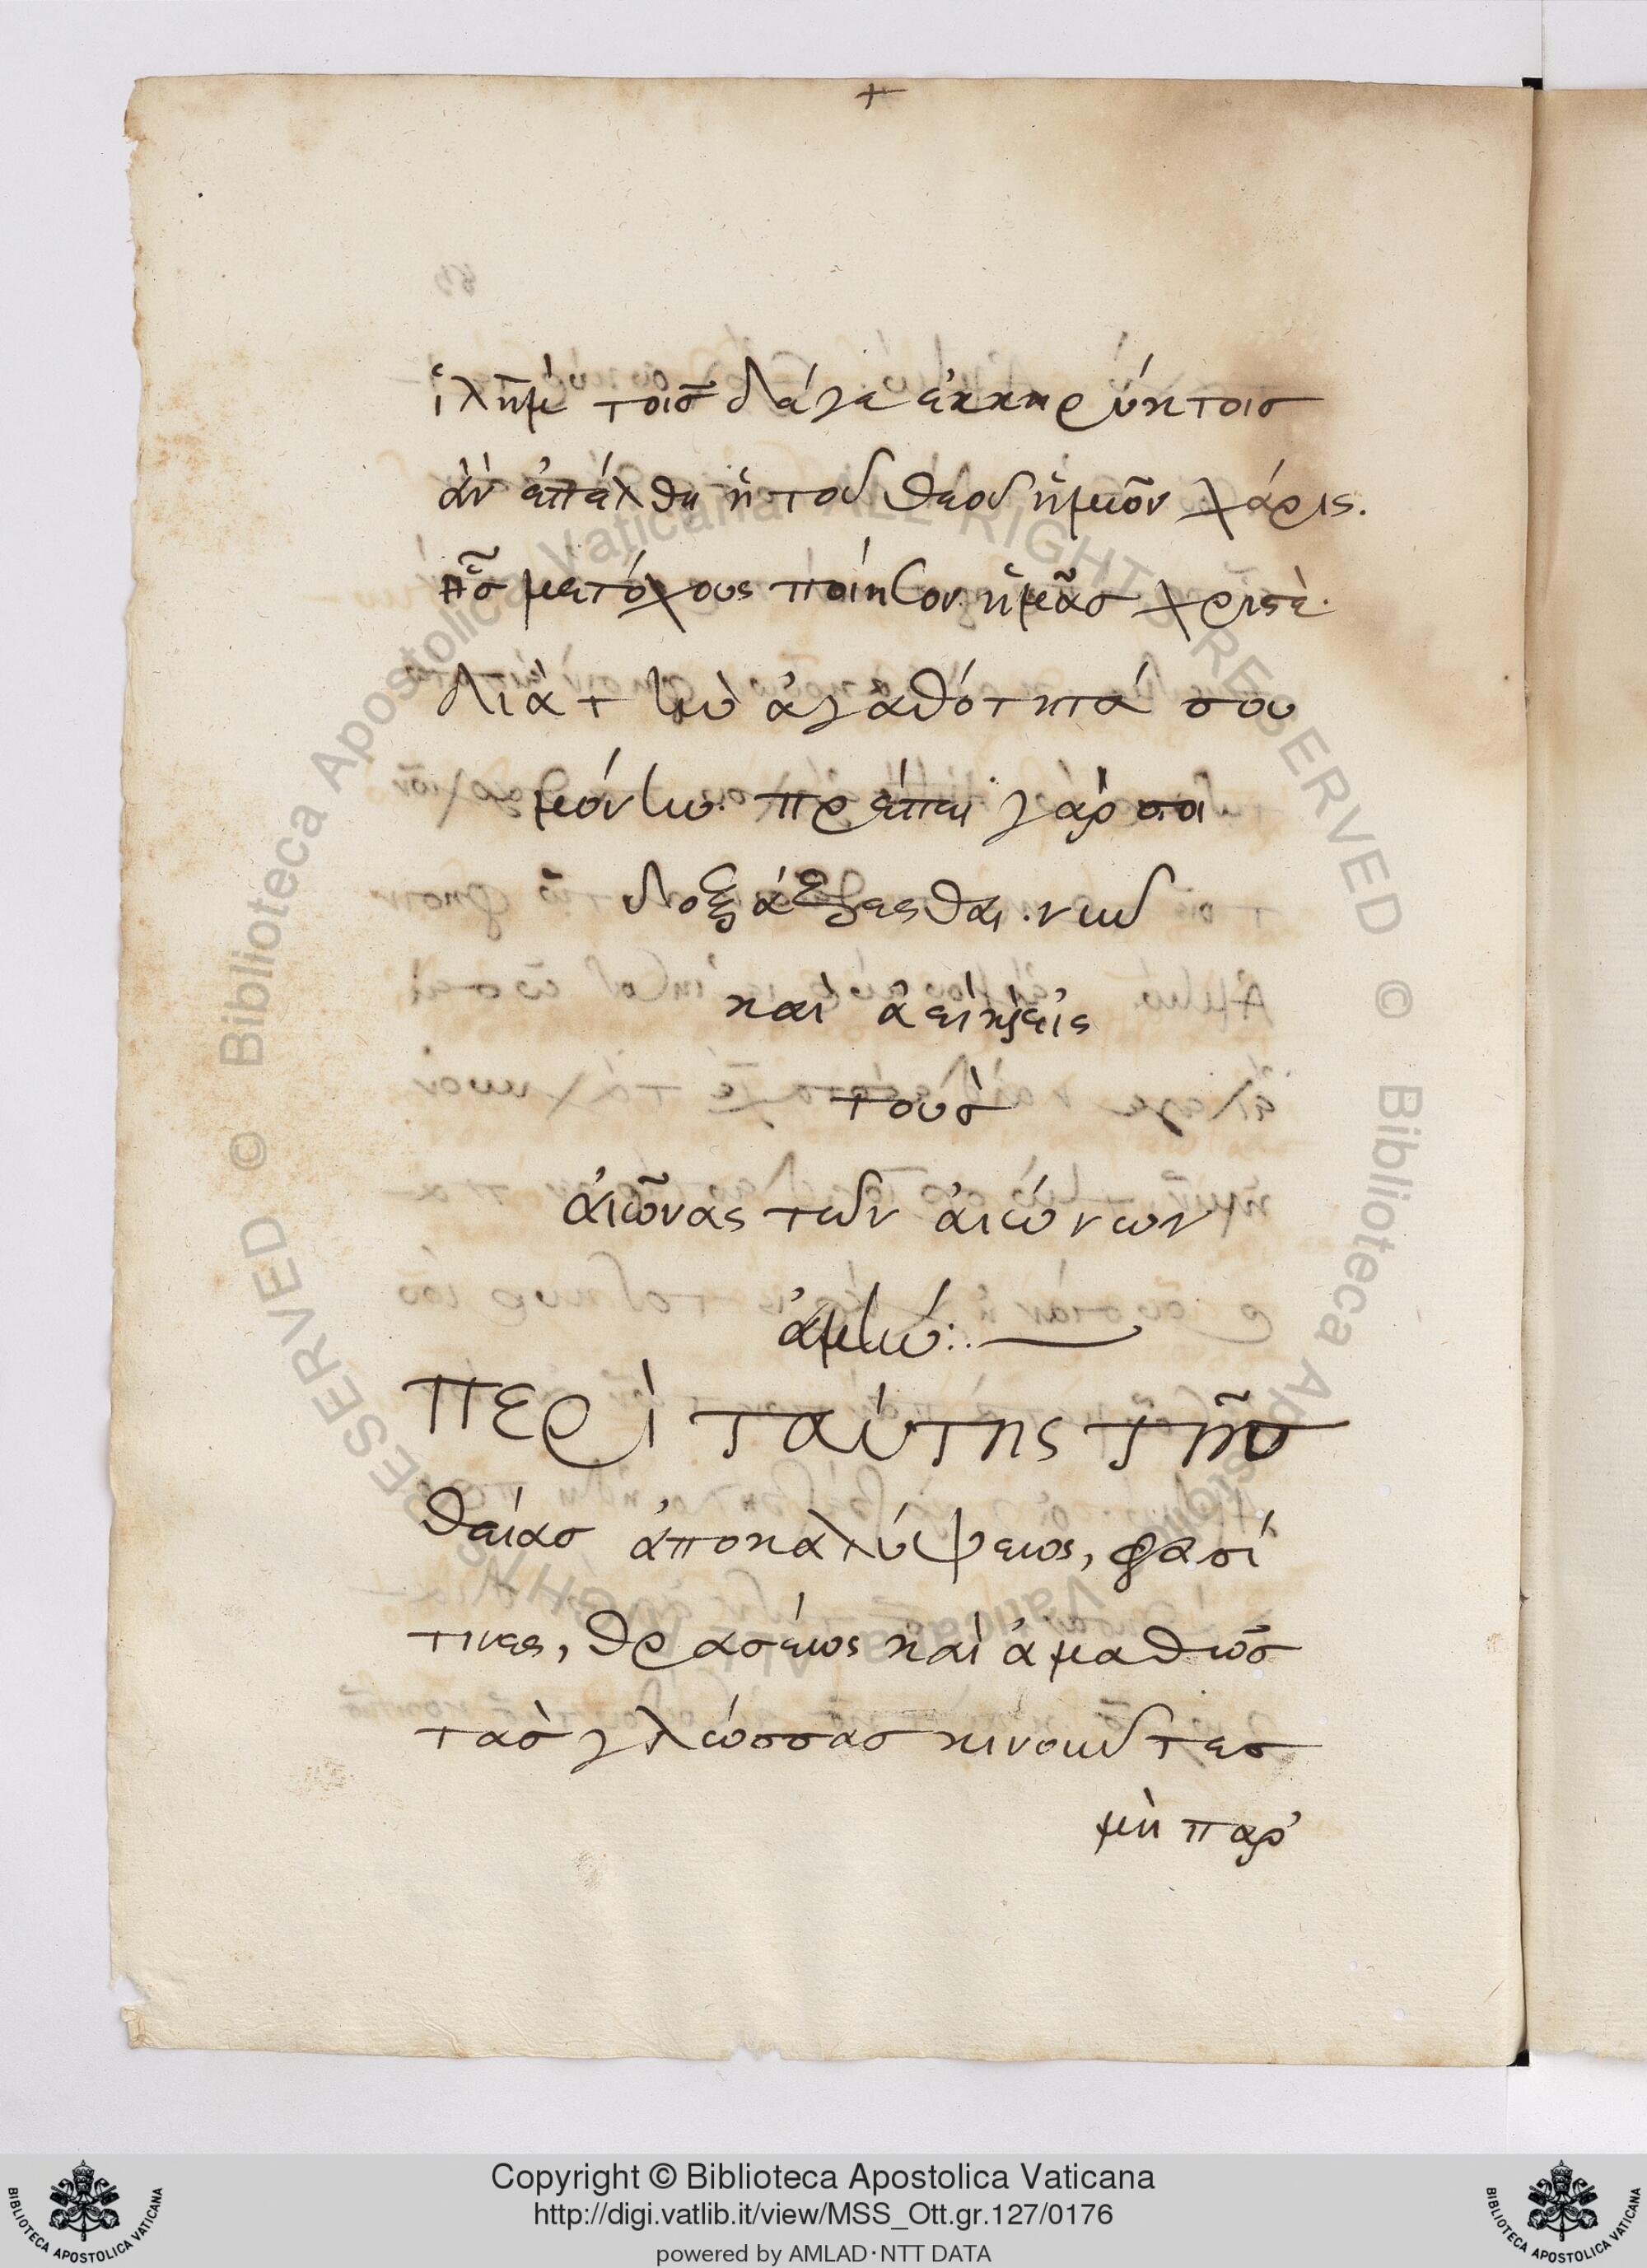 +
ἱλὴμ· τοῖσ δάγε ἐκκηρύκτοισ
ἂν ἐπέλθη ἡ τοῦ θεοῦ ἡμῶν χάρις.
ἧσ μετόχους ποίησον ἡμᾶσ χριστὲ·
διὰ τὴν ἀγαθότητά σου
μόνην. πρέπει γάρ σοι
δοξάζεσθαι. νῦν
καὶ ἀεὶ κ εἰς
τοὺσ
αἰῶνας τῶν αἰώνων
ἀμήν:.
Περὶ ταύτης τῆσ
θείασ ἀποκαλύψεως, φασί
τινες, θρασέως καὶ ἀμαθῶσ
τὰσ γλώσσασ κινοῦντεσ
μὴ παρ'
Copyright © Biblioteca Apostolica Vaticana
http://digi.vatlib.it/view/MSS_Ott.gr.127/0176
powered by AMLAD·NTT DATA
BIBLIOTECA APOSTOLICA VATICANA
BIBLIOTECA APOSTOLICA VATICANA
© Biblioteca Apostolica Vaticana ALL RIGHTS RESERVED © Biblioteca Apostolica Vaticana ALL RIGHTS RESERVED